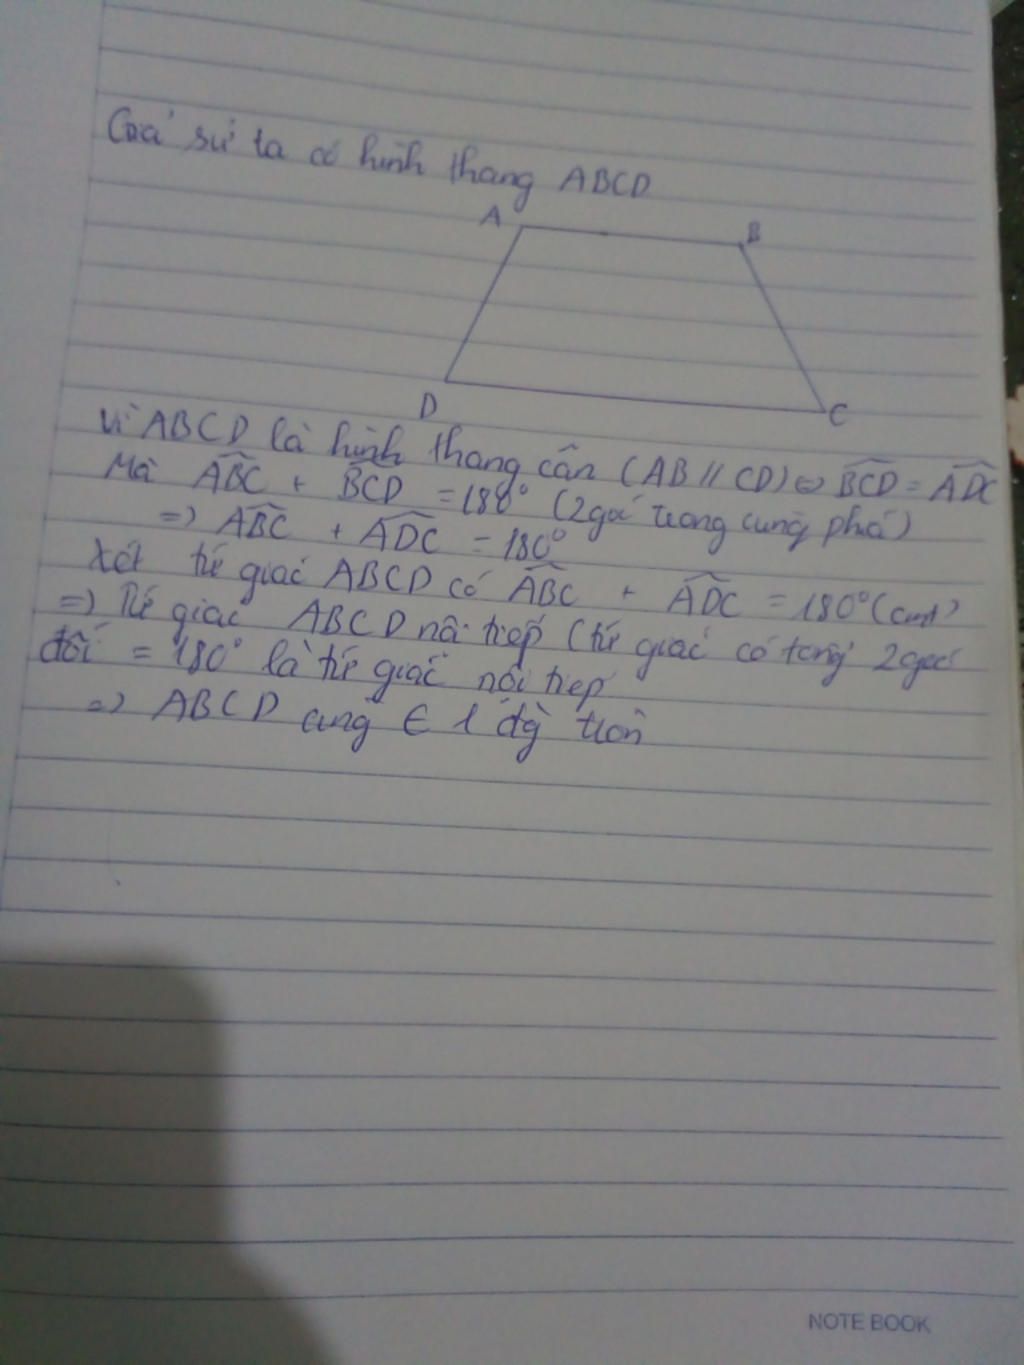 Giả sử ta có hình thang ABCD
A
B
D
C
Vì ABCD là hình thang cân (AB // CD) ⇔ BCD = ADC
Mà ABC + BCD = 180° (2 góc trong cùng phía)
=> ABC + ADC = 180°
Xét tứ giác ABCD có ABC + ADC = 180° (cmt)
=> Tứ giác ABCD nội tiếp (tứ giác có tổng 2 góc
đối = 180° là tứ giác nội tiếp
=> ABCD cùng ∈ 1 đg tròn
NOTE BOOK